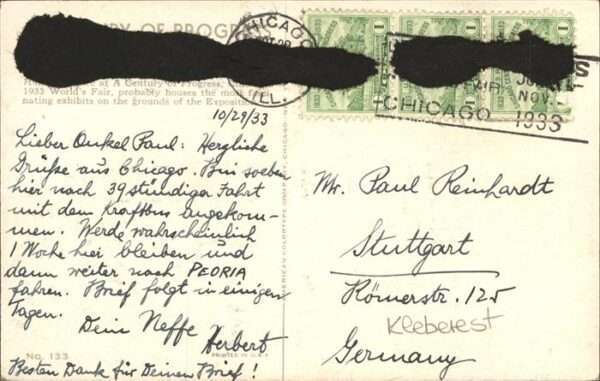 RY OF PROGRE
at A Century of Progress,
1933 World's Fair, probably houses the most
nating exhibits on the grounds of the Exposition
CHICAGO
ILL.
1 1 1
FAIR
CHICAGO
NOV.
1933
10/29/33
Lieber Onkel Paul: Herzliche
Grüße aus Chicago. Bin soeben
hier nach 39 stündiger Fahrt
mit dem Kraftbus angekom-
men. Werde wahrscheinlich
1 Woche hier bleiben und
dann weiter nach PEORIA
fahren. Brief folgt in einigen
Tagen.
Dein Neffe
Herbert
Besten Dank für Deinen Brief!
No. 133
PRINTED IN U.S.A.
Mr. Paul Reinhardt
Stuttgart
Römerstr. 125
Kleberest
Germany